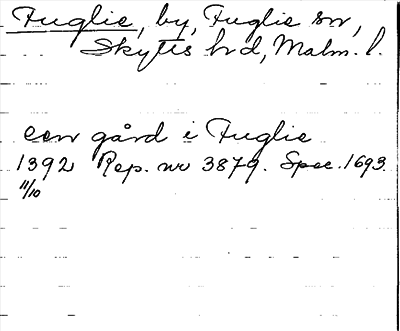 Fuglie, by, Fuglie sn,
Skytts hrd, Malm. l.
en gård i Fuglie
1392 Rep. nr 3879. Spec. 1693.
11/10